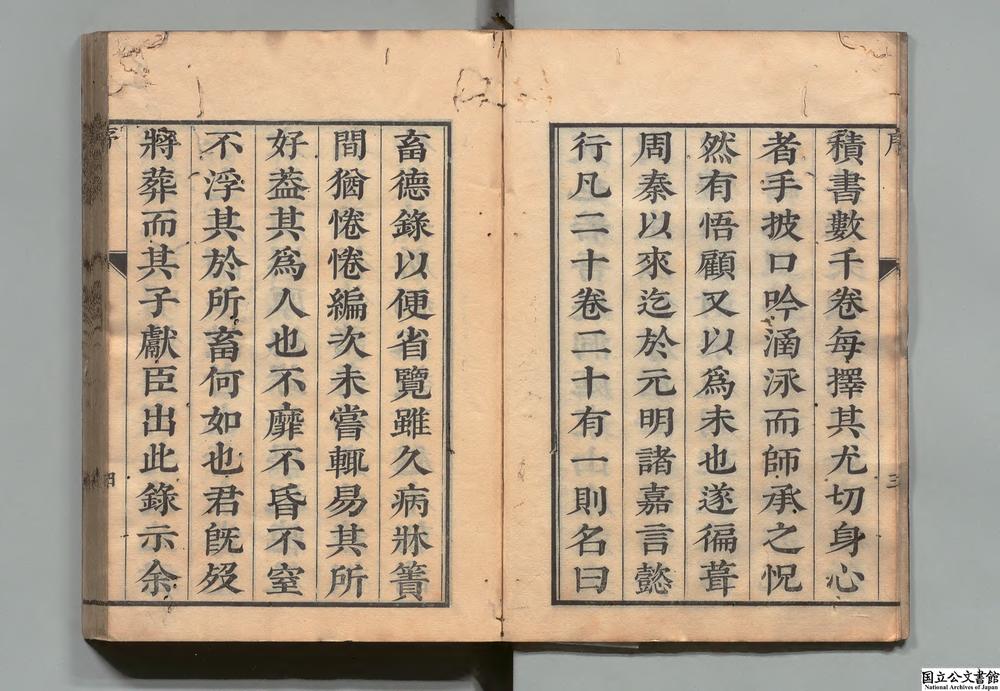 積書數千卷每擇其尤切身心
者手披口吟涵泳而師承之怳
然有悟顧又以爲未也遂徧葺
周秦以來迄於元明諸嘉言懿
行凡二十卷二十有一則名曰
畜德錄以便省覽雖久病牀簀
間猶惓惓編次未嘗輒易其所
好葢其爲人也不靡不昏不窒
不浮其於所畜何如也君旣歿
將葬而其子獻臣出此錄示余
国立公文書館
National Archives of Japan